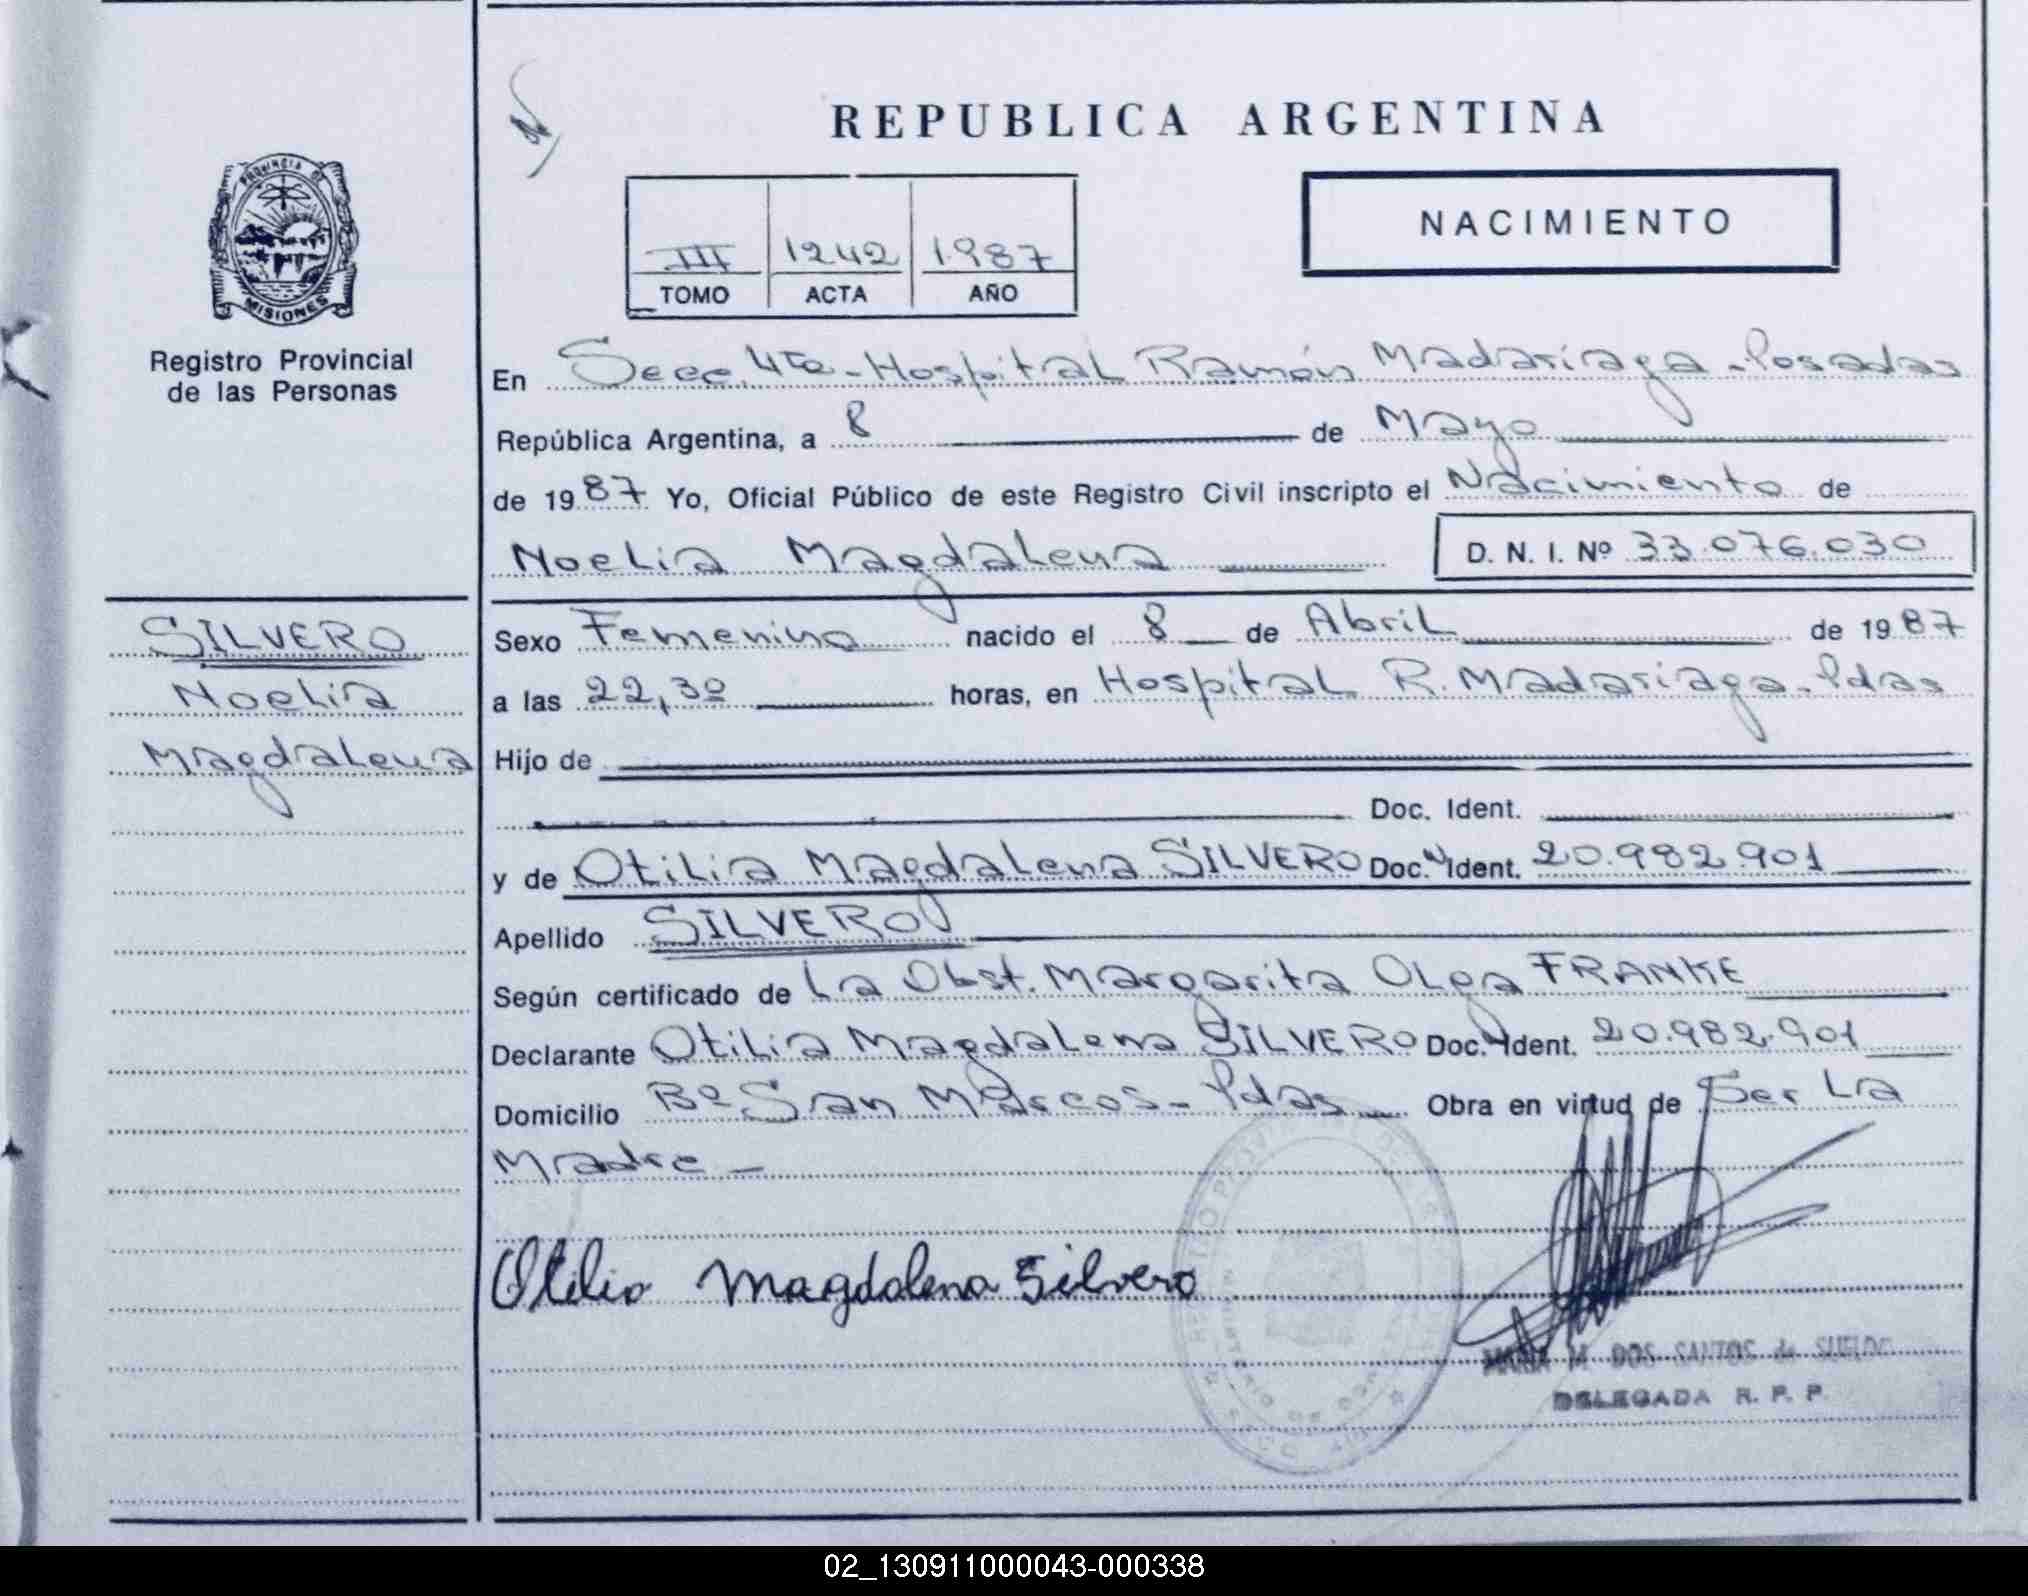 REPUBLICA ARGENTINA
NACIMIENTO
III 1242 1987
TOMO ACTA AÑO
PROVINCIA DE
MISIONES
Registro Provincial
de las Personas
En Secc. 4ta - Hospital Ramón Madariaga - Posadas
República Argentina, a 8 de Mayo
de 1987 Yo, Oficial Público de este Registro Civil inscripto el Nacimiento de
Noelia Magdalena D. N. I. Nº 33.076.030
SILVERO
Noelia
Magdalena
Sexo Femenino nacido el 8 de Abril de 1987
a las 22,30 horas, en Hospital R. Madariaga - Pdas
Hijo de
Doc. Ident.
y de Otilia Magdalena SILVERO Doc. Ident. 20.982.901
Apellido SILVERO
Según certificado de La Obst. Margarita Olga FRANKE
Declarante Otilia Magdalena SILVERO Doc. Ident. 20.982.901
Domicilio Bº San Marcos - Pdas Obra en virtud de Ser La
Madre -
Otilia Magdalena Silvero
M. DOS SANTOS de
DELEGADA R. P. P.
02_130911000043-000338